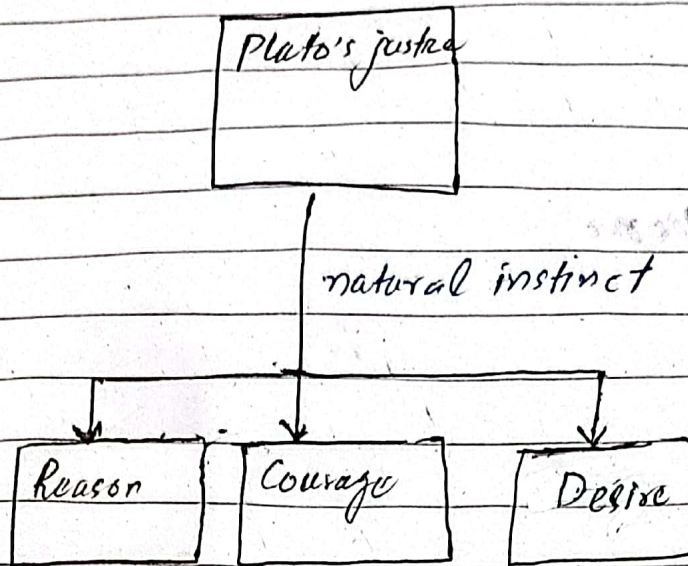 Plato's justice
natural instinct
Reason
Courage
Desire